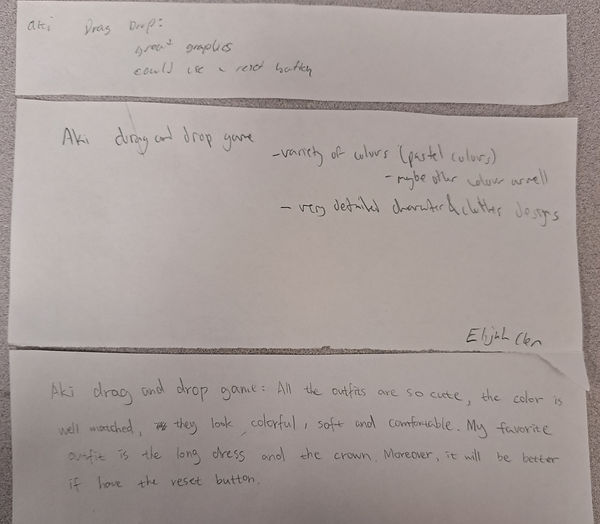 Aki Drag Drop:
great graphics
could use a reset button
Aki drag and drop game
- variety of colors (pastel colors)
- maybe other colour as well
- very detailed character & clothes designs
Elijah
Aki drag and drop game: All the outfits are so cute, the color is
well matched, they look colorful, soft and comfortable. My favorite
outfit is the long dress and the crown. Moreover, it will be better
if have the reset button.